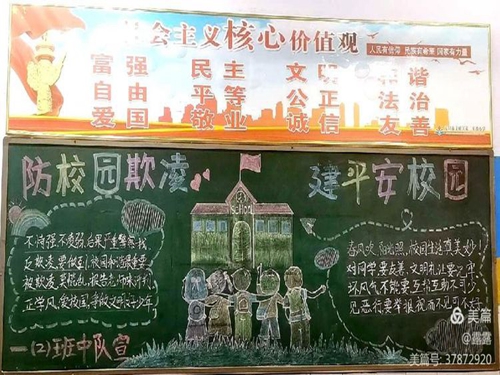 社会主义核心价值观
人民有信仰 民族有希望 国家有力量
富强 民主 文明 和谐
自由 平等 公正 法治
爱国 敬业 诚信 友善
防校园欺凌
建平安校园
School
不恃强不凌弱
反欺凌要
被欺凌莫慌乱报告老师
正学风
春风吹 阳光照 校园生活真美妙!
对同学要友善 文明礼让要
坏风气不能要互帮互助不可少
见恶行要举报
一(2)班中队宣
美篇
@露露
美篇号: 37872920